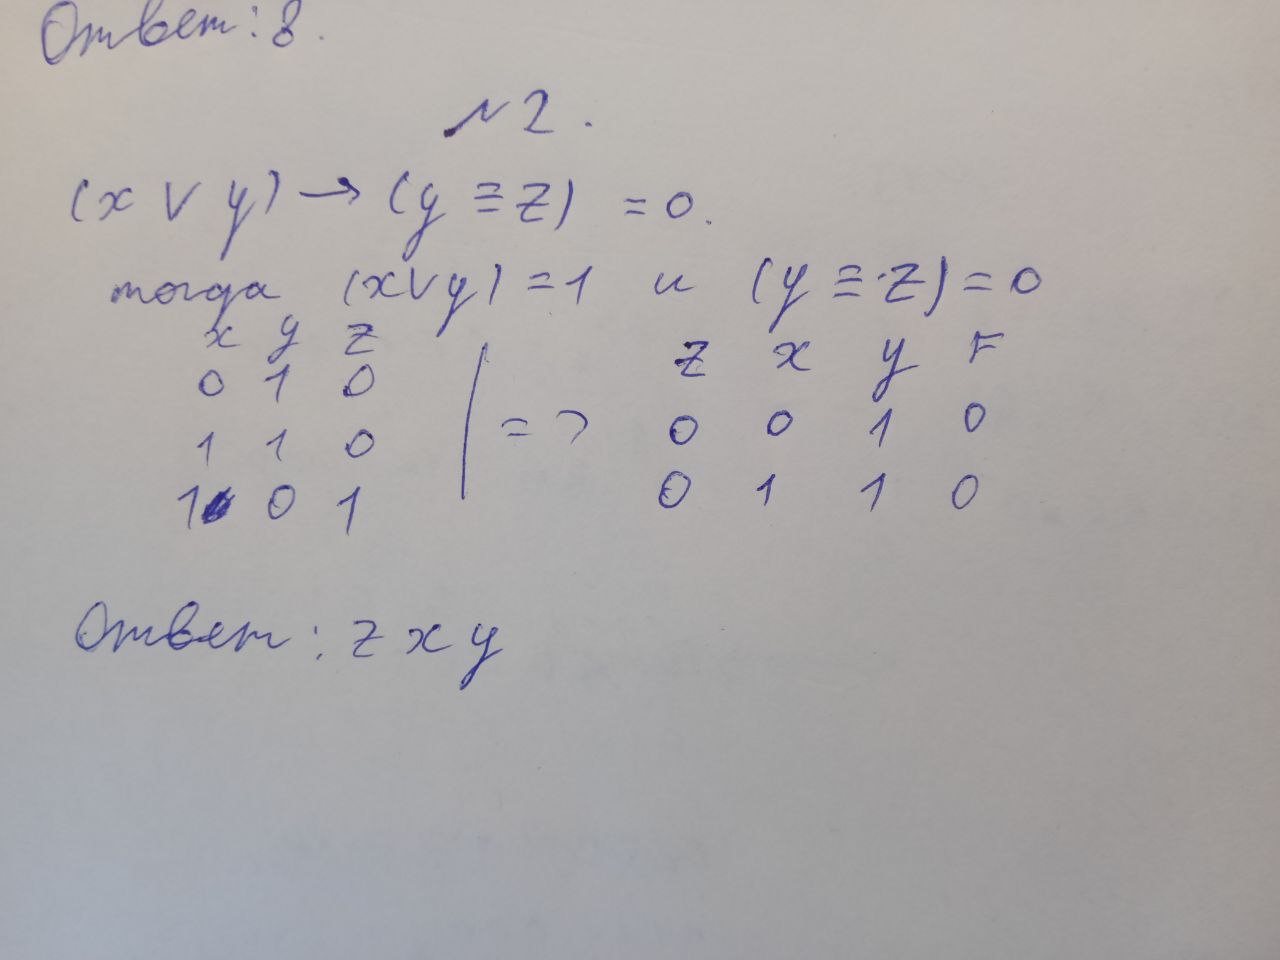 Ответ: 8.
№2.
(x ∨ y) → (y ≡ z) = 0.
тогда (x∨y) = 1 и (y ≡ z) = 0
x y z
0 1 0
1 1 0
1 0 1
=>
z x y F
0 0 1 0
0 1 1 0
Ответ: z x y